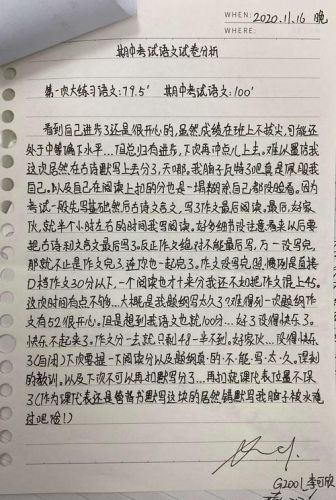 WHEN: 2020.11.16 晚
WHERE:
期中考试语文试卷分析
第一次大练习语文:79.5' 期中考试语文:100'
看到自己进步了还是很开心的,虽然成绩在班上不拔尖,可能还
处于中等偏下水平…但总归有进步,下次再冲点儿上去。难以置信我
这次居然在古诗默写上丢分了,天哪。我脑子瓦特了吧真是佩服我
自己。以及自己在阅读上扣的分也是一塌糊涂自己都没脸看。因为
考试一般先写基础然后古诗文言文,写了作文最后阅读。最后,好家
伙,就半个小时左右的时间我写阅读。好多细节没注意看来以后要
把古诗和文言文最后写了。反正作文绝对不能最后写,万一没写完,
那就不止是作文完了,连你也一起完了。作文没写完照惯例是直接
口掉作文30分以下,一个阅读也才来分我还不如把作文限上45。
这次时间有点不够…大概是我题纲写太久了?难得列一次题纲作
文有52很开心。但是想到我语文也就100分…好了没得快乐了。
快乐不起来了。作文分一去就只剩48一半不到。好家伙…没得快乐
了(自闭)下次要提一下阅读分以及题纲真·的·不·能·写·太·久。误判
的教训。以及下次不可以再扣默写分了…再扣就课代表位置不保
了(作为课代表还是管督书默写这块的居然错默写我脑子被水淹
过吧俭!)
G2001 李可欣